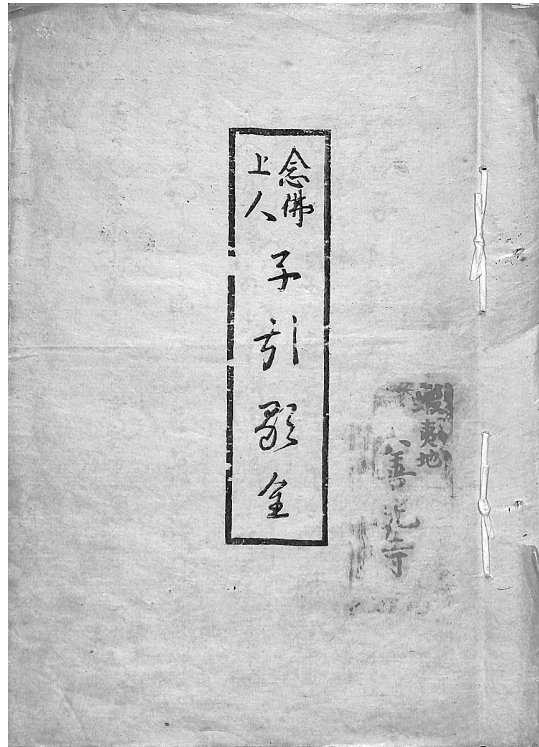 念佛
上人
子引歌全
蝦夷地
善光寺